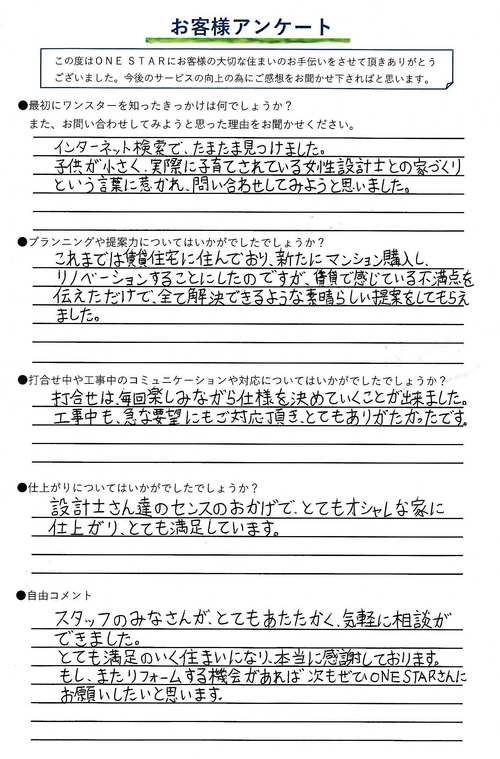 お客様アンケート
この度はONE STARにお客様の大切な住まいのお手伝いをさせて頂きありがとう
ございました。今後のサービスの向上の為にご感想をお聞かせ下さればと思います。
●最初にワンスターを知ったきっかけは何でしょうか？
また、お問い合わせしてみようと思った理由をお聞かせください。
インターネット検索で、たまたま見つけました。
子供が小さく、実際に子育てされている女性設計士との家づくり
という言葉に惹かれ、問い合わせしてみようと思いました。
●プランニングや提案力についてはいかがでしたでしょうか？
これまでは賃貸住宅に住んでおり、新たにマンション購入し、
リノベーションすることにしたのですが、賃貸で感じている不満点を
伝えただけで、全て解決できるような素晴らしい提案をしてもらえ
ました。
●打合せ中や工事中のコミュニケーションや対応についてはいかがでしたでしょうか？
打合せは、毎回楽しみながら仕様を決めていくことが出来ました。
工事中も、急な要望にもご対応頂き、とてもありがたかったです。
●仕上がりについてはいかがでしたでしょうか？
設計士さん達のセンスのおかげで、とてもオシャレな家に
仕上がり、とても満足しています。
●自由コメント
スタッフのみなさんが、とてもあたたかく、気軽に相談が
できました。
とても満足のいく住まいになり、本当に感謝しております。
もし、またリフォームする機会があれば 次もぜひONE STARさんに
お願いしたいと思います。